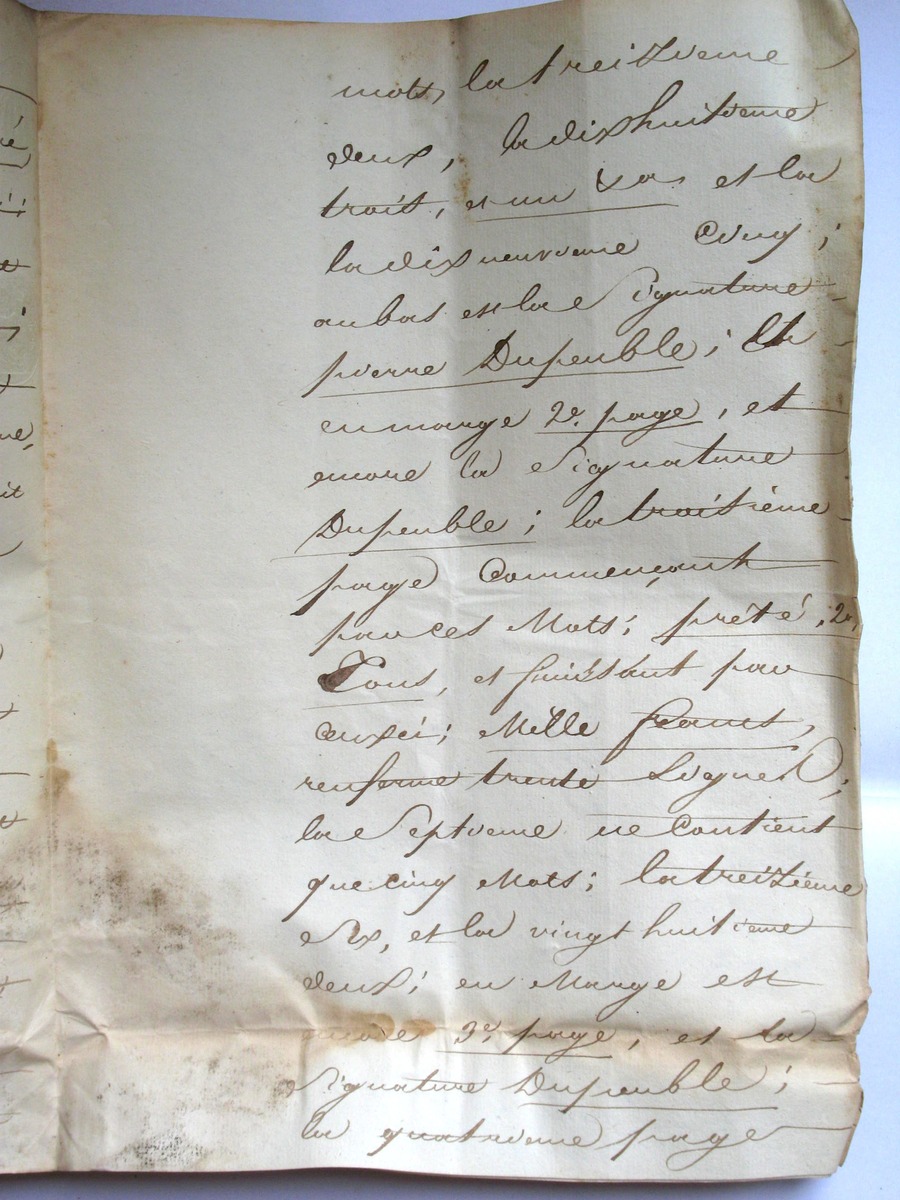 mots, la treizieme
deux, la dixhuitieme
trois, et un et la
la dix neuvieme Cinq ;
au bas est la Signature
pierre Dupeuble ; Et
en marge 2e. page, et
encore la Signature
Dupeuble ; la troisième
page Commençant
par ces Mots ; prété, 2e,
Tous, et finissant par
ceuxci ; Mille francs,
renferme trente Lignes ;
la Septieme ne Contient
que cinq Mots ; la treizième
Six, et la vingt huitieme
deux ; en Marge est
encore 3e. page, et la
Signature Dupeuble ;
la quatrieme page